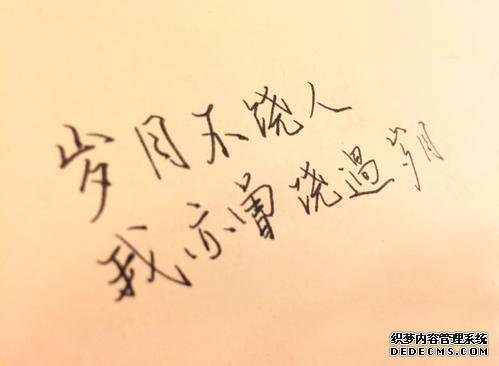 岁月不饶人
我亦曾饶過岁月
织梦内容管理系统
DEDECMS.COM